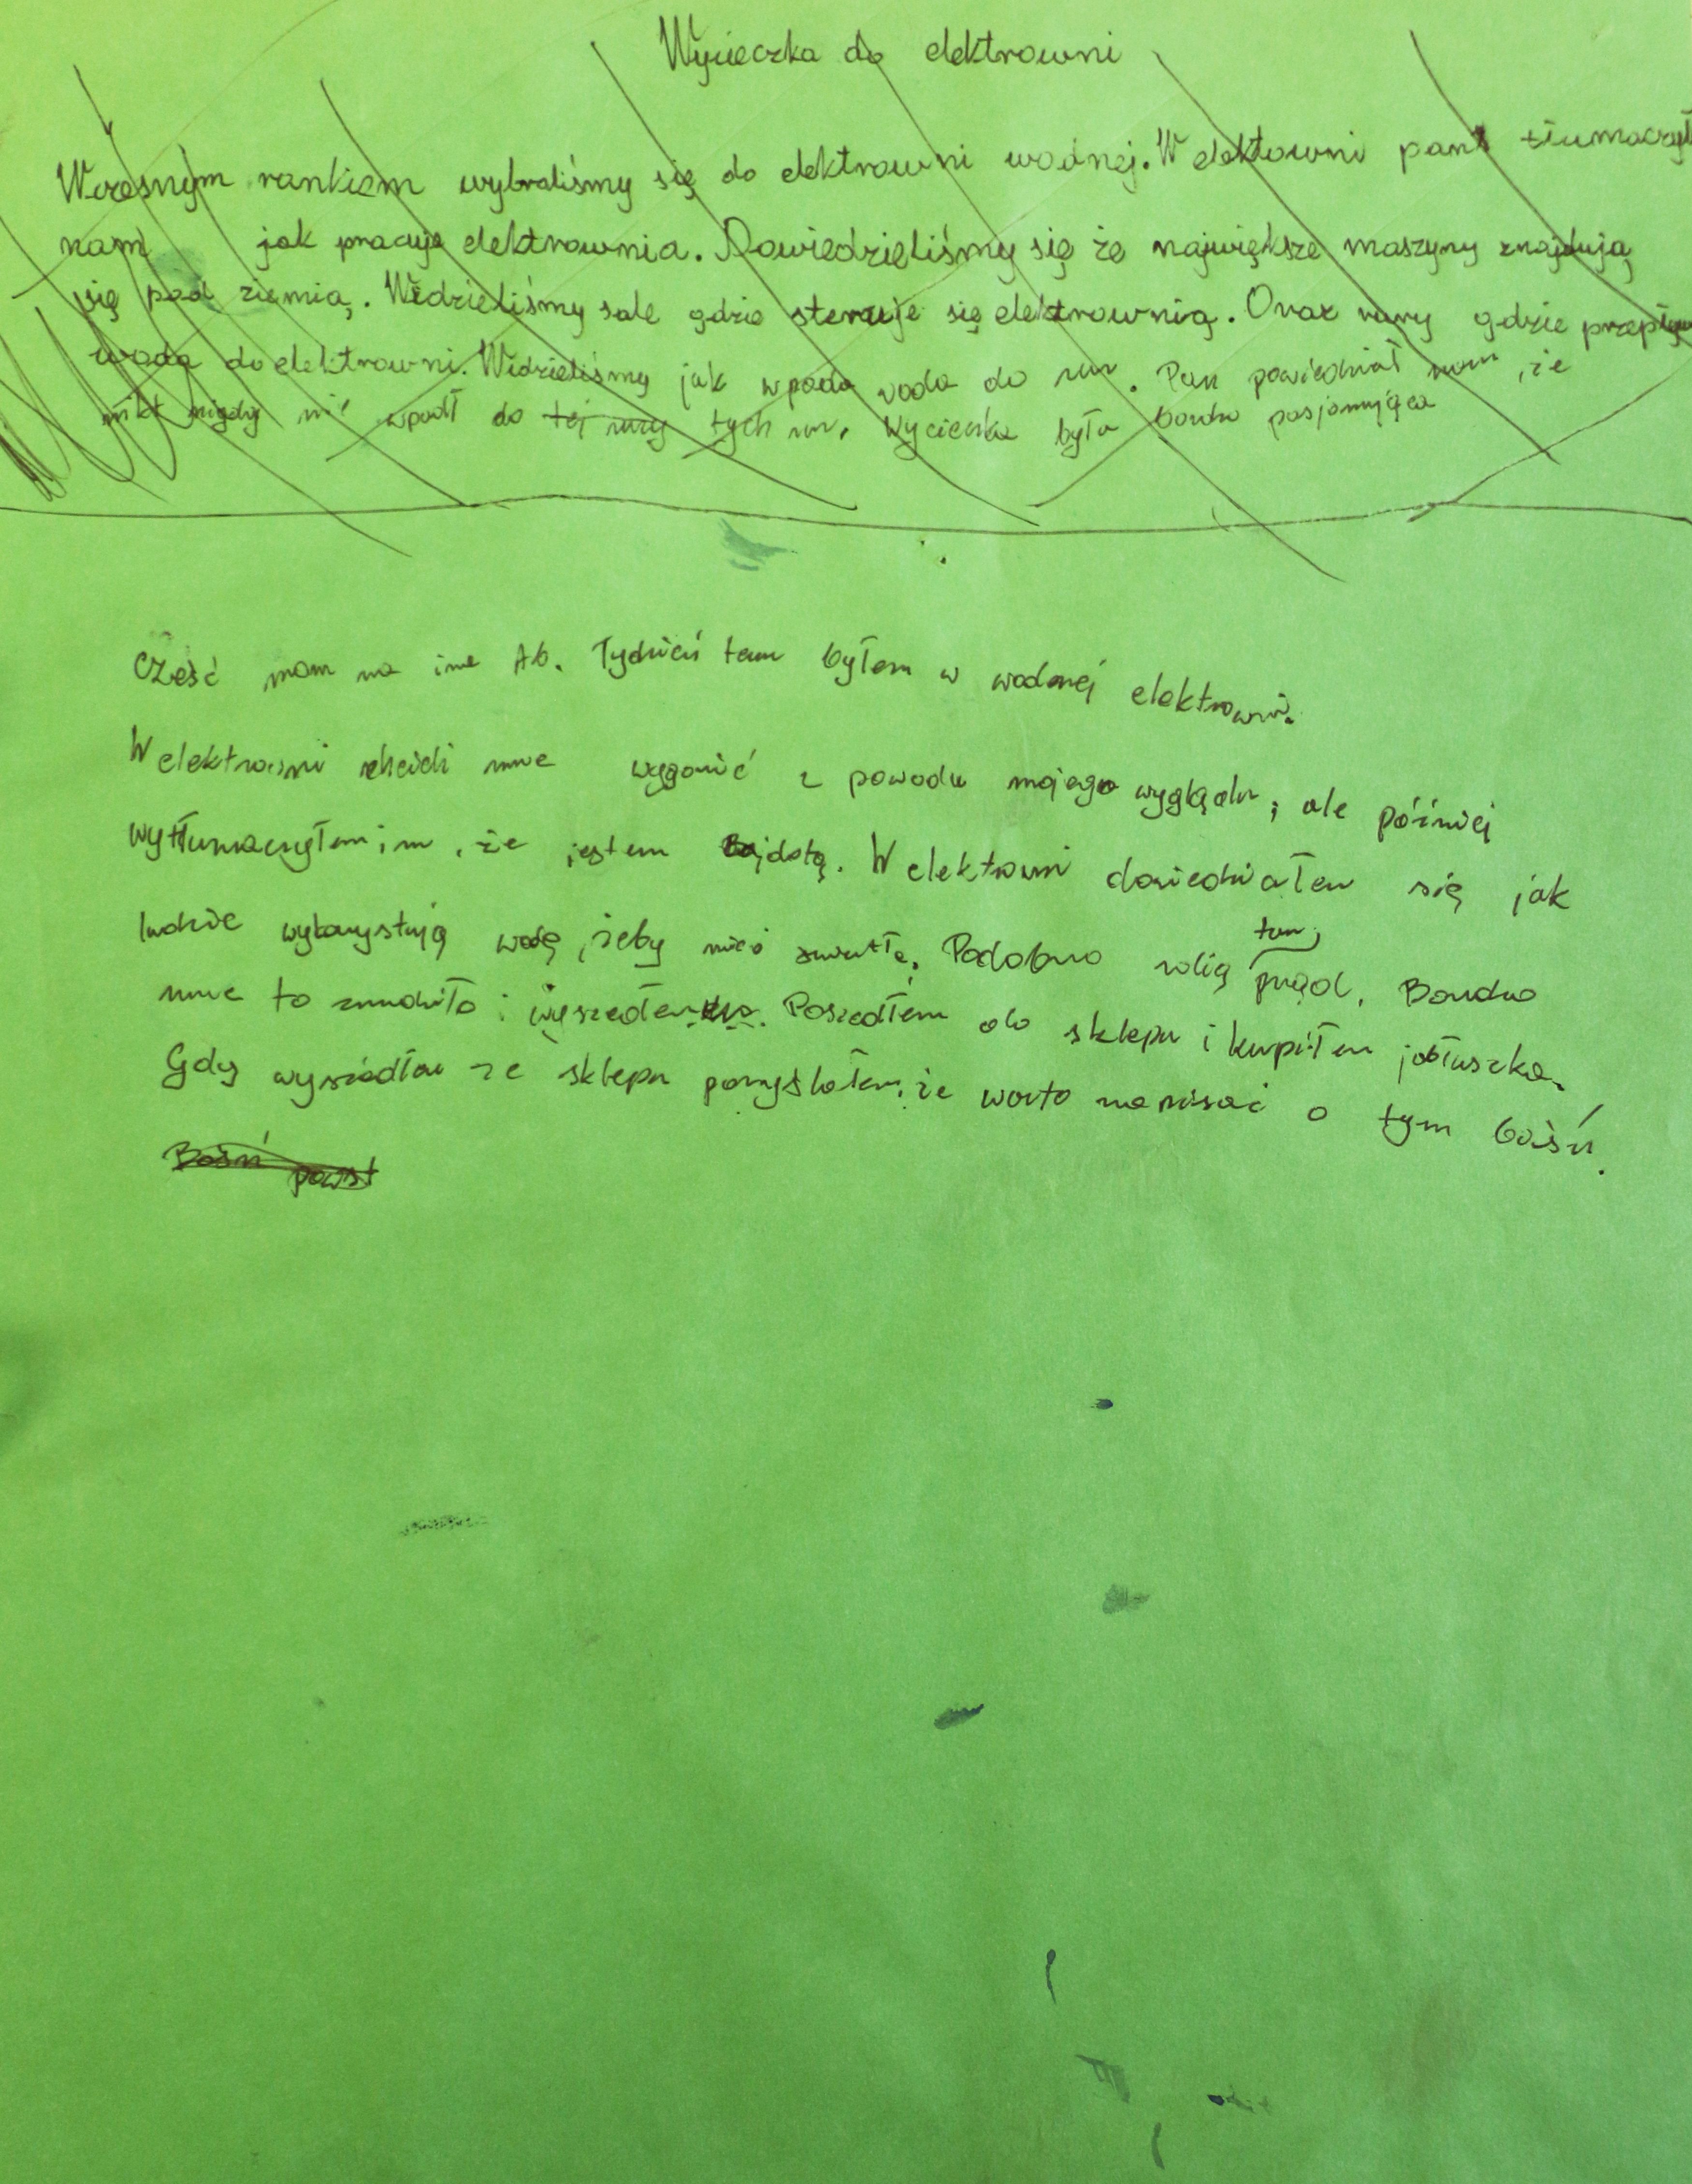 Wycieczka do elektrowni
Wczesnym rankiem wybraliśmy się do elektrowni wodnej. W elektowni pan tłumaczył
nam jak pracuje elektrownia. Dowiedzieliśmy się że największe maszyny znajdują
się pod ziemią. Widzieliśmy sale gdzie steruje się elektrownią. Oraz rury gdzie przepływ
woda do elektrowni. Widzieliśmy jak wpada woda do rur. Pan powiedział nam, że
nikt nigdy nie wpadł do tej rury tych rur. Wycieczka była bardzo pasjonująca
Cześć mam na imie Ab. Tydzień temu byłem w wodnej elektrowni.
W elektrowni chcieli mnie wygonić z powodu mojego wyglądu, ale później
wytłumaczyłem im, że jestem Bajdotą. W elektrowni dowiedziałem się jak
ludzie wykorzystują wodę, żeby mieć światło. Podobno robią tam prąd. Bardzo
mnie to znudziło i wyszedłem. Poszedłem do sklepu i kupiłem jabłuszka.
Gdy wyszedłem ze sklepu pomyślałem, że warto napisać o tym baśń.
Baśń powst